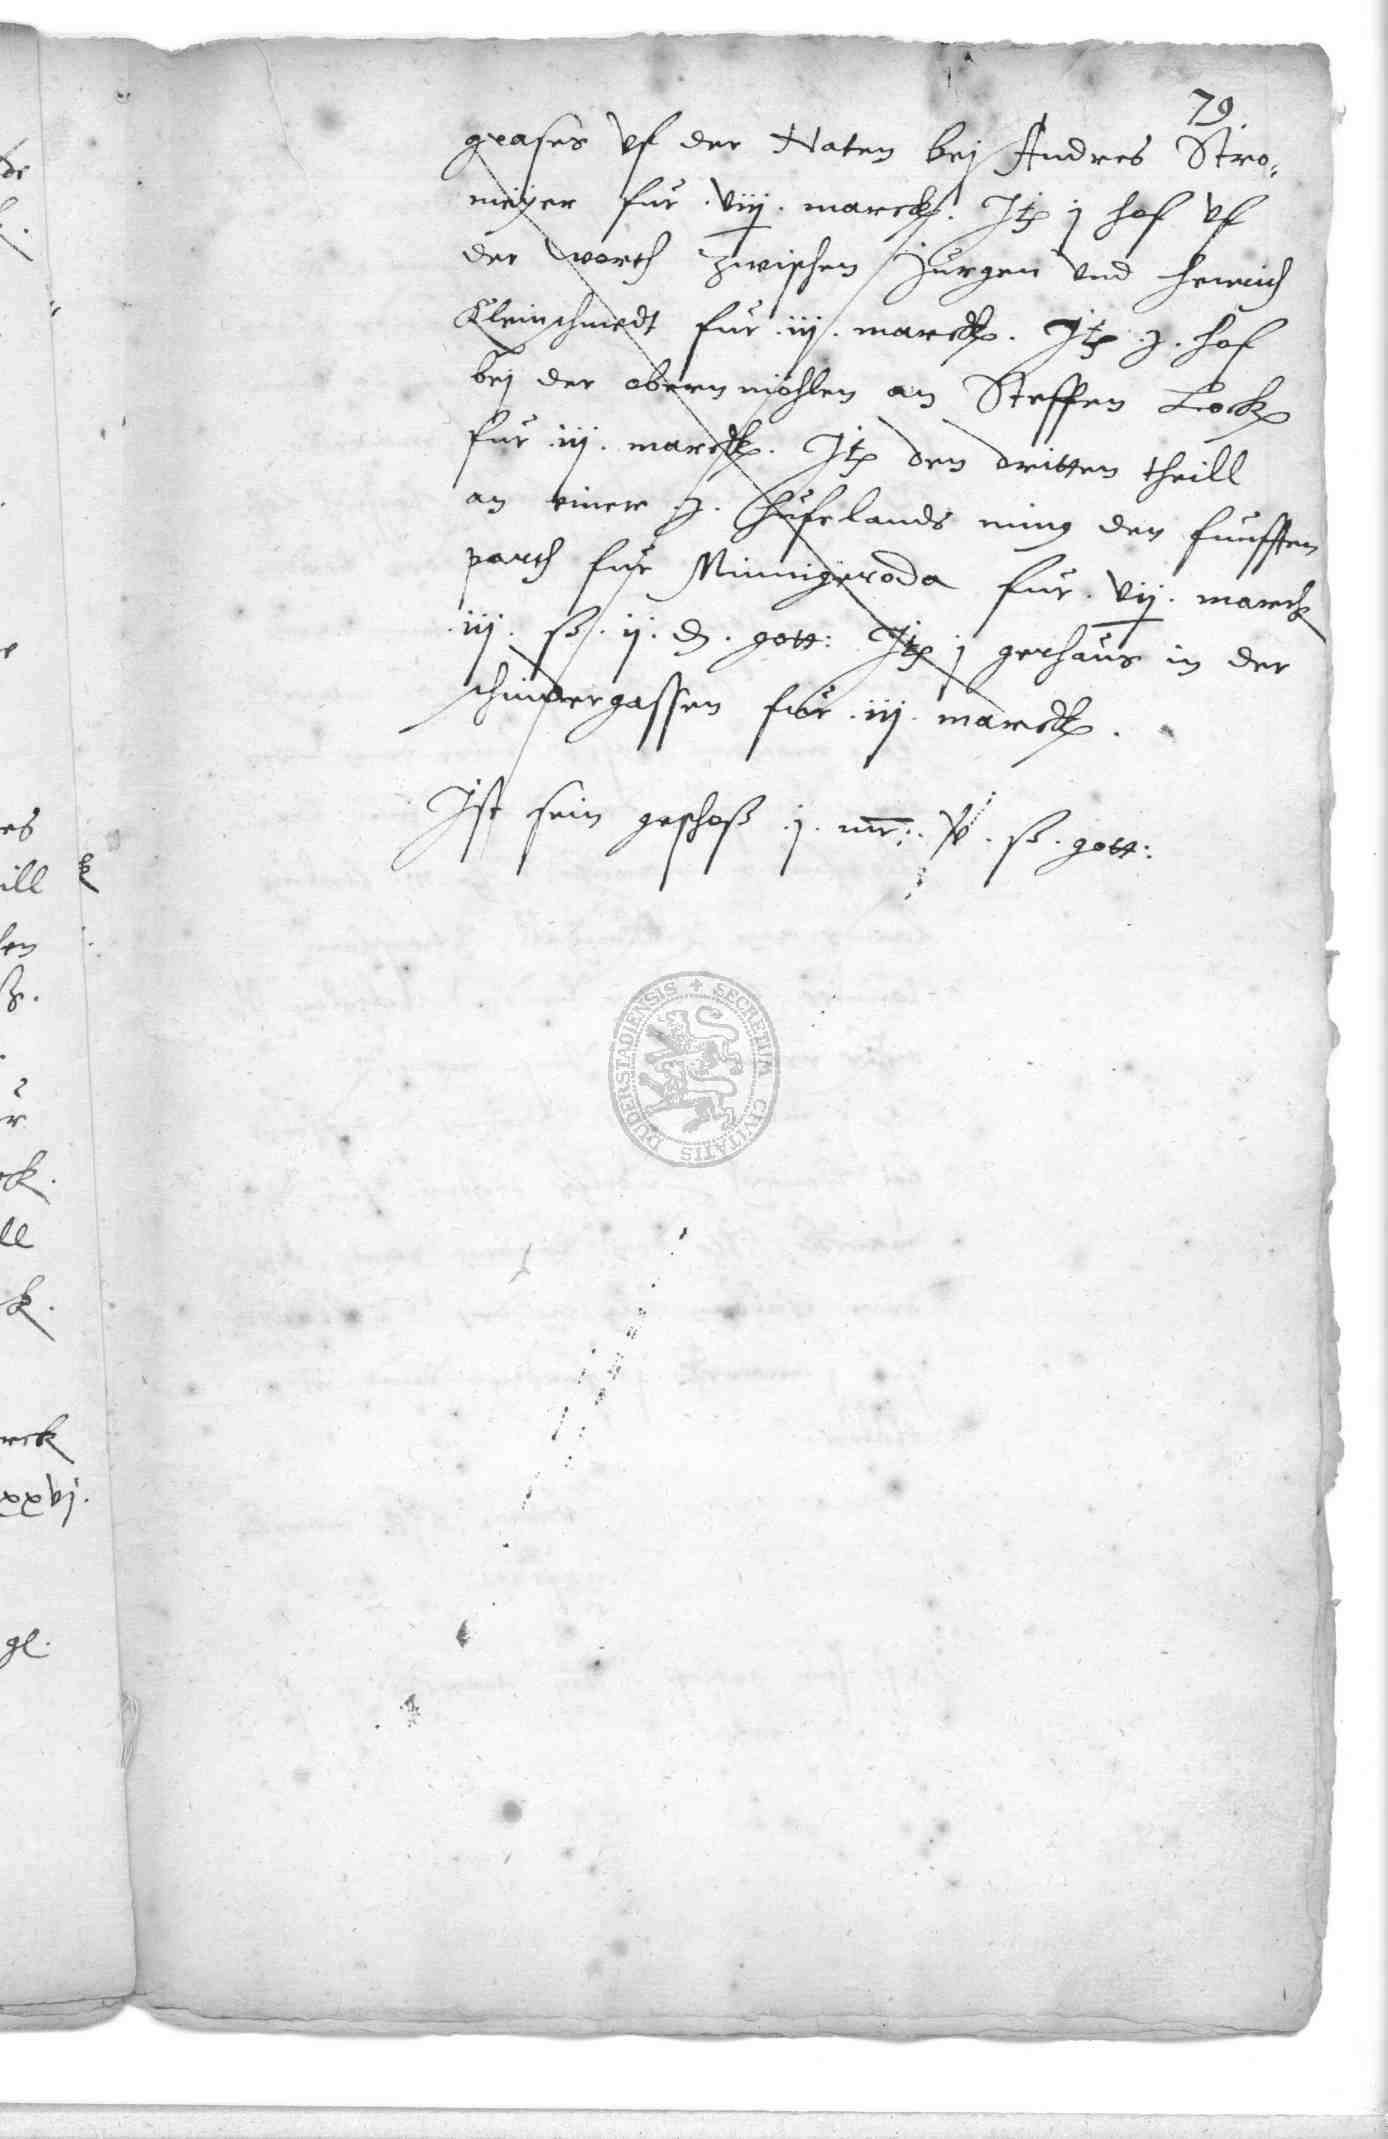 79.
grases vf der Naten bej Andres Stro-
meijer fur .viij. marck. Jt j hof vf
der worth zwischen Jurgen vnd Henrich
Kleinschmedt fur .iij. marck. Jt .j. hof
bej der obern mohlen an Steffen Lock
fur .iij. marck. Jt den dritten theill
an einer .j. hufelands ming den funfften
parth fur Minnigeroda fur .vij. marck
.iij. ß .ij. d. gott: Jt j gerhaus in der
schindergassen fur .iij. marck.
Jst sein geschoß .j. mr: . ß. gott:
DUDERSTADIENSIS SECRETUM CIVITATIS
de
es
ill
len
ß.
r
ck.
ll
k.
rck
xxvj.
gl.